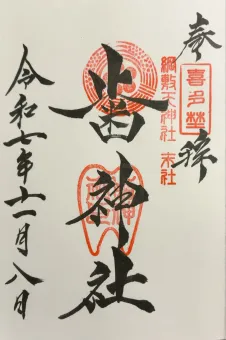 奉拝
喜多埜
綱敷天神社 末社
歯神社
令和七年十一月八日